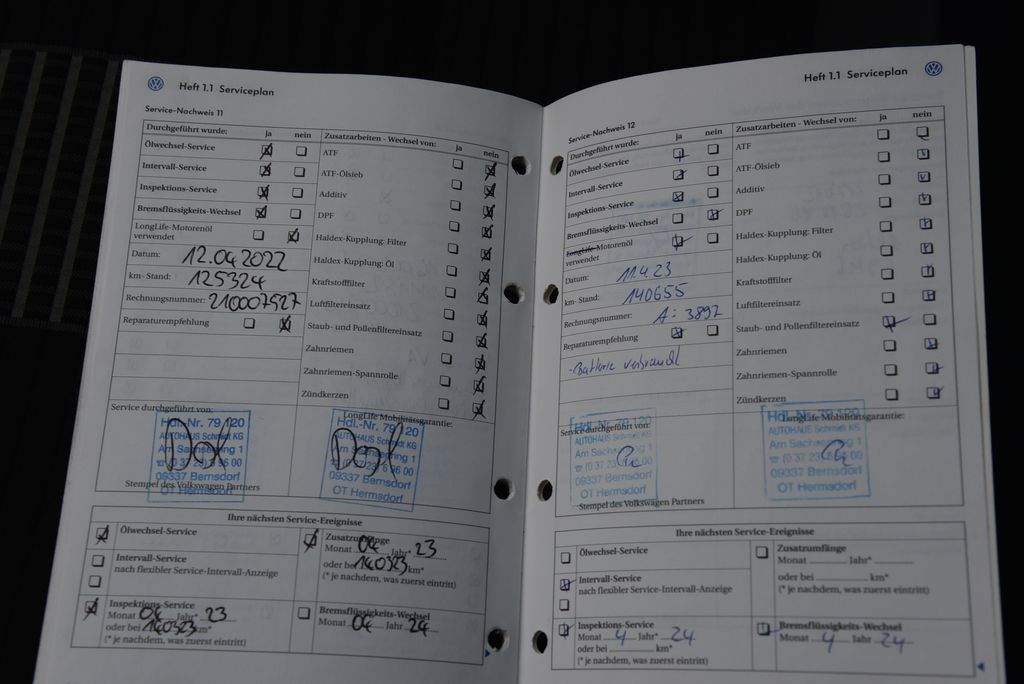 Heft 1.1 Serviceplan
Service-Nachweis 11
Durchgeführt wurde: ja nein
Ölwechsel-Service
Intervall-Service
Inspektions-Service
Bremsflüssigkeits-Wechsel
LongLife-Motorenöl
verwendet
Datum: 12.04.2022
km-Stand: 125324
Rechnungsnummer: 210007527
Reparaturempfehlung
Zusatzarbeiten - Wechsel von: ja nein
ATF
ATF-Ölsieb
Additiv
DPF
Haldex-Kupplung: Filter
Haldex-Kupplung: Öl
Kraftstofffilter
Luftfiltereinsatz
Staub- und Pollenfiltereinsatz
Zahnriemen
Zahnriemen-Spannrolle
Zündkerzen
Service durchgeführt von:
Hdl.-Nr. 79 120
AUTOHAUS Schmidt KG
Am Sachsenring 1
09337 Bernsdorf
OT Hermsdorf
Stempel des Volkswagen Partners
LongLife Mobilitätsgarantie:
Hdl.-Nr. 79 120
AUTOHAUS Schmidt KG
Am Sachsenring 1
09337 Bernsdorf
OT Hermsdorf
Ihre nächsten Service-Ereignisse
Ölwechsel-Service
Intervall-Service
nach flexibler Service-Intervall-Anzeige
Inspektions-Service
Monat 04 Jahr* 23
oder bei 140323 km*
(* je nachdem, was zuerst eintritt)
Zusatzumfänge
Monat 04 Jahr* 23
oder bei 140323 km*
(* je nachdem, was zuerst eintritt)
Bremsflüssigkeits-Wechsel
Monat 04 Jahr 24
Heft 1.1 Serviceplan
Service-Nachweis 12
Durchgeführt wurde: ja nein
Ölwechsel-Service
Intervall-Service
Inspektions-Service
Bremsflüssigkeits-Wechsel
LongLife-Motorenöl
verwendet
Datum: 11.4.23
km-Stand: 140655
Rechnungsnummer: A: 3892
Reparaturempfehlung
- Batterie verbraucht
Zusatzarbeiten - Wechsel von: ja nein
ATF
ATF-Ölsieb
Additiv
DPF
Haldex-Kupplung: Filter
Haldex-Kupplung: Öl
Kraftstofffilter
Luftfiltereinsatz
Staub- und Pollenfiltereinsatz
Zahnriemen
Zahnriemen-Spannrolle
Zündkerzen
Service durchgeführt von:
Hdl.-Nr. 79 120
AUTOHAUS Schmidt KG
Am Sachsenring 1
09337 Bernsdorf
OT Hermsdorf
Stempel des Volkswagen Partners
LongLife Mobilitätsgarantie:
Hdl.-Nr. 79 120
AUTOHAUS Schmidt KG
Am Sachsenring 1
09337 Bernsdorf
OT Hermsdorf
Ihre nächsten Service-Ereignisse
Ölwechsel-Service
Intervall-Service
nach flexibler Service-Intervall-Anzeige
Inspektions-Service
Monat 4 Jahr* 24
oder bei km*
(* je nachdem, was zuerst eintritt)
Zusatzumfänge
Monat Jahr*
oder bei km*
(* je nachdem, was zuerst eintritt)
Bremsflüssigkeits-Wechsel
Monat 4 Jahr 24